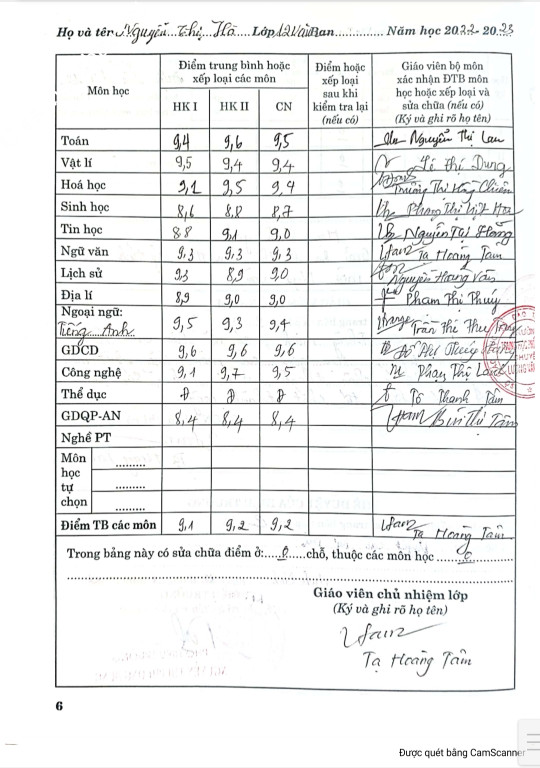 Họ và tên Nguyễn Thị Hà Lớp 12 Ban Năm học 2022-2023
Môn học
Điểm trung bình hoặc xếp loại các môn
HK I HK II CN
Điểm hoặc xếp loại sau khi kiểm tra lại (nếu có)
Giáo viên bộ môn xác nhận ĐTB môn học hoặc xếp loại và sửa chữa (nếu có) (Ký và ghi rõ họ tên)
Toán 9,4 9,6 9,5 Nguyễn Thị Lan
Vật lí 9,5 9,4 9,4 Lê Thị Dung
Hoá học 9,1 9,5 9,4 Trương Thị
Sinh học 8,6 8,8 8,7 Phùng Thị Việt Hoa
Tin học 8,8 9,1 9,0 Nguyễn Thị Hằng
Ngữ văn 9,3 9,3 9,3 Tạ Hoàng Tâm
Lịch sử 9,3 8,9 9,0 Nguyễn Hoàng Vân
Địa lí 8,9 9,0 9,0 Phạm Thị Thúy
Ngoại ngữ:
Tiếng Anh 9,5 9,3 9,4 Trần Thị Thu
GDCD 9,6 9,6 9,6 Đỗ Thúy
Công nghệ 9,1 9,7 9,5 Phạm Thị
Thể dục Đ Đ Đ Tô Thanh Tâm
GDQP-AN 8,4 8,4 8,4 Bùi Thị Tâm
Nghề PT
Môn học tự chọn
Điểm TB các môn 9,1 9,2 9,2 Tạ Hoàng Tâm
Trong bảng này có sửa chữa điểm ở: 0 chỗ, thuộc các môn học 0
Giáo viên chủ nhiệm lớp
(Ký và ghi rõ họ tên)
Tạ Hoàng Tâm
6
Được quét bằng CamScanner